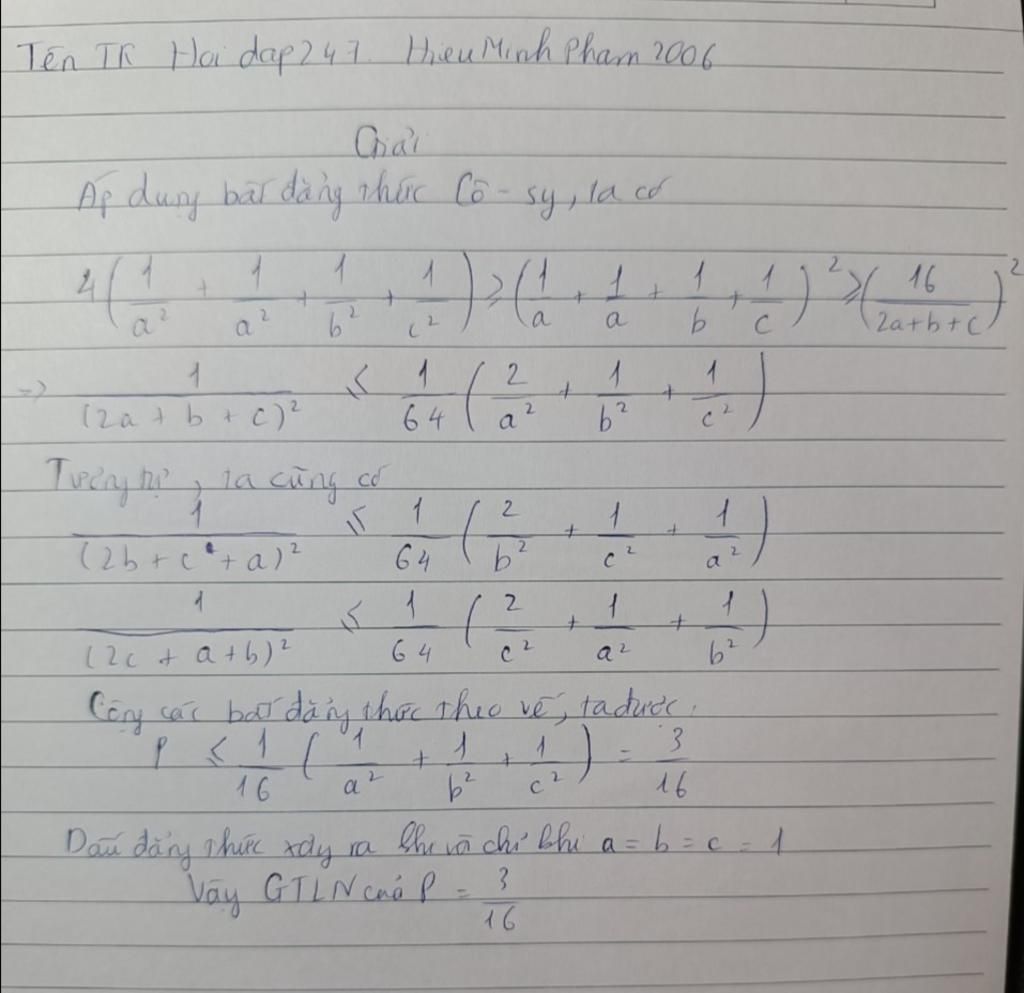 Tên TK Hoidap247. HieuMinhPham2006
Giải
Áp dụng bất đẳng thức Cô-sy, ta có
4(1/a² + 1/a² + 1/b² + 1/c²) ≥ (1/a + 1/a + 1/b + 1/c)² ≥ (16/(2a+b+c))²
=> 1/(2a + b + c)² ≤ 1/64 (2/a² + 1/b² + 1/c²)
Tương tự, ta cũng có
1/(2b + c + a)² ≤ 1/64 (2/b² + 1/c² + 1/a²)
1/(2c + a + b)² ≤ 1/64 (2/c² + 1/a² + 1/b²)
Cộng các bất đẳng thức theo vế, ta được:
P ≤ 1/16 (1/a² + 1/b² + 1/c²) = 3/16
Dấu đẳng thức xảy ra khi và chỉ khi a = b = c = 1
Vậy GTLN của P = 3/16